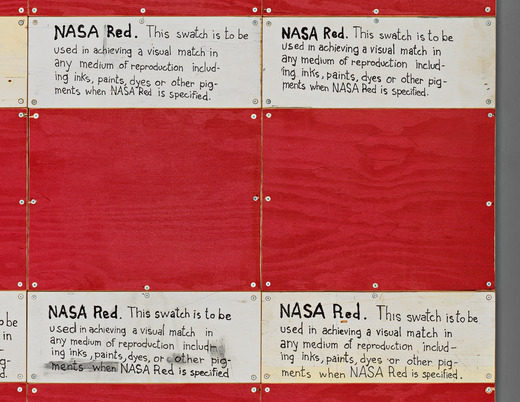 NASA Red. This swatch is to be
used in achieving a visual match in
any medium of reproduction includ-
ing inks, paints, dyes or other pig-
ments when NASA Red is specified.
NASA Red. This swatch is to be
used in achieving a visual match in
any medium of reproduction includ-
ing inks, paints, dyes or other pig-
ments when NASA Red is specified.
o be
in
-
g-
d.
NASA Red. This swatch is to be
used in achieving a visual match in
any medium of reproduction includ-
ing inks, paints, dyes, or other pig-
ments when NASA Red is specified
NASA Red. This swatch is to be
used in achieving a visual match in
any medium of reproduction includ-
ing inks, paints, dyes or other pig-
ments when NASA Red is specified.